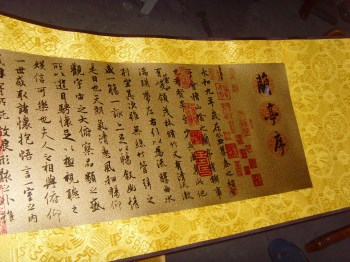 蘭亭序
永和九年歲在癸丑暮春之初會
于會稽山陰之蘭亭脩稧事
也羣賢畢至少長咸集此地
有峻領茂林脩竹又有清流激
湍暎帶左右引以為流觴曲水
列坐其次雖無絲竹管弦之
盛一觴一詠亦足以暢敘幽情
是日也天朗氣清惠風和暢仰
觀宇宙之大俯察品類之盛
所以遊目騁懷足以極視聽之
娛信可樂也夫人之相與俯仰
一世或取諸懷抱悟言一室之內
寄所託放浪形骸之外雖